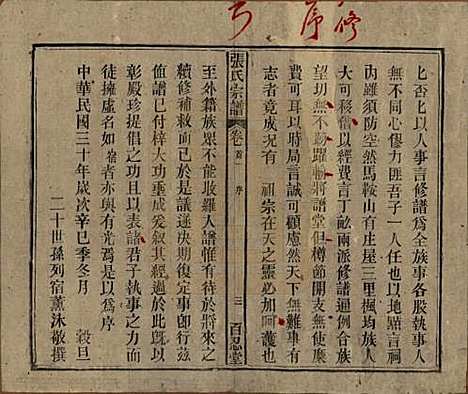 修序
匕否匕以人事言修譜為全族事各股執事人
無不同心僇力匪吾子一人任也以地題言祠
內雖須防空然馬鞍山有庄屋三里楓均族人
大可移舊以經費言丁畝兩派修譜通例合族
望玥無不踴躍輸將譜堂但樽節開支無使縻
費可耳以時局言誠可顧慮然天下無難事有
志者竟成況有祖宗在天之靈必加呵護也
張氏宗譜
卷首
序
三
百忍堂
至外籍族眾不能收羅人譜惟有待於將來之
續修補救而已議遂決期復定事即行茲
值譜已付梓大功垂成爰敘其經過於此既以
彰殿珍提倡之功且以表諸君子執事之力而
徒擁虛名如宿者亦與有光焉是以為序
中華民國三十年歲次辛巳季冬月 穀旦
二十世孫列宿薰沐敬撰